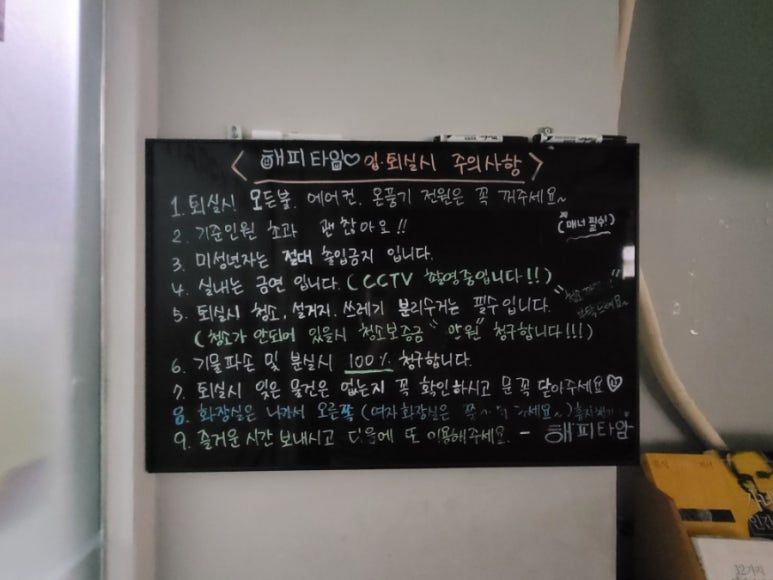 < 해피타임♡ 입·퇴실시 주의사항 >
1. 퇴실시 모든불, 에어컨, 온풍기 전원은 꼭 꺼주세요~
2. 기준인원 초과 괜찮아요!! (매너 필수!)
3. 미성년자는 절대 출입금지 입니다.
4. 실내는 금연 입니다. (CCTV 촬영중입니다!!)
5. 퇴실시 청소, 설거지, 쓰레기 분리수거는 필수 입니다.
(청소가 안되어 있을시 청소보증금 "만원" 청구합니다!!!)
6. 기물파손 및 분실시 100% 청구합니다.
7. 퇴실시 잊은 물건은 없는지 꼭 확인하시고 문 꼭 닫아주세요♡
8. 화장실은 나가서 오른쪽 (여자화장실은
9. 즐거운 시간 보내시고 다음에 또 이용해주세요. - 해피타임